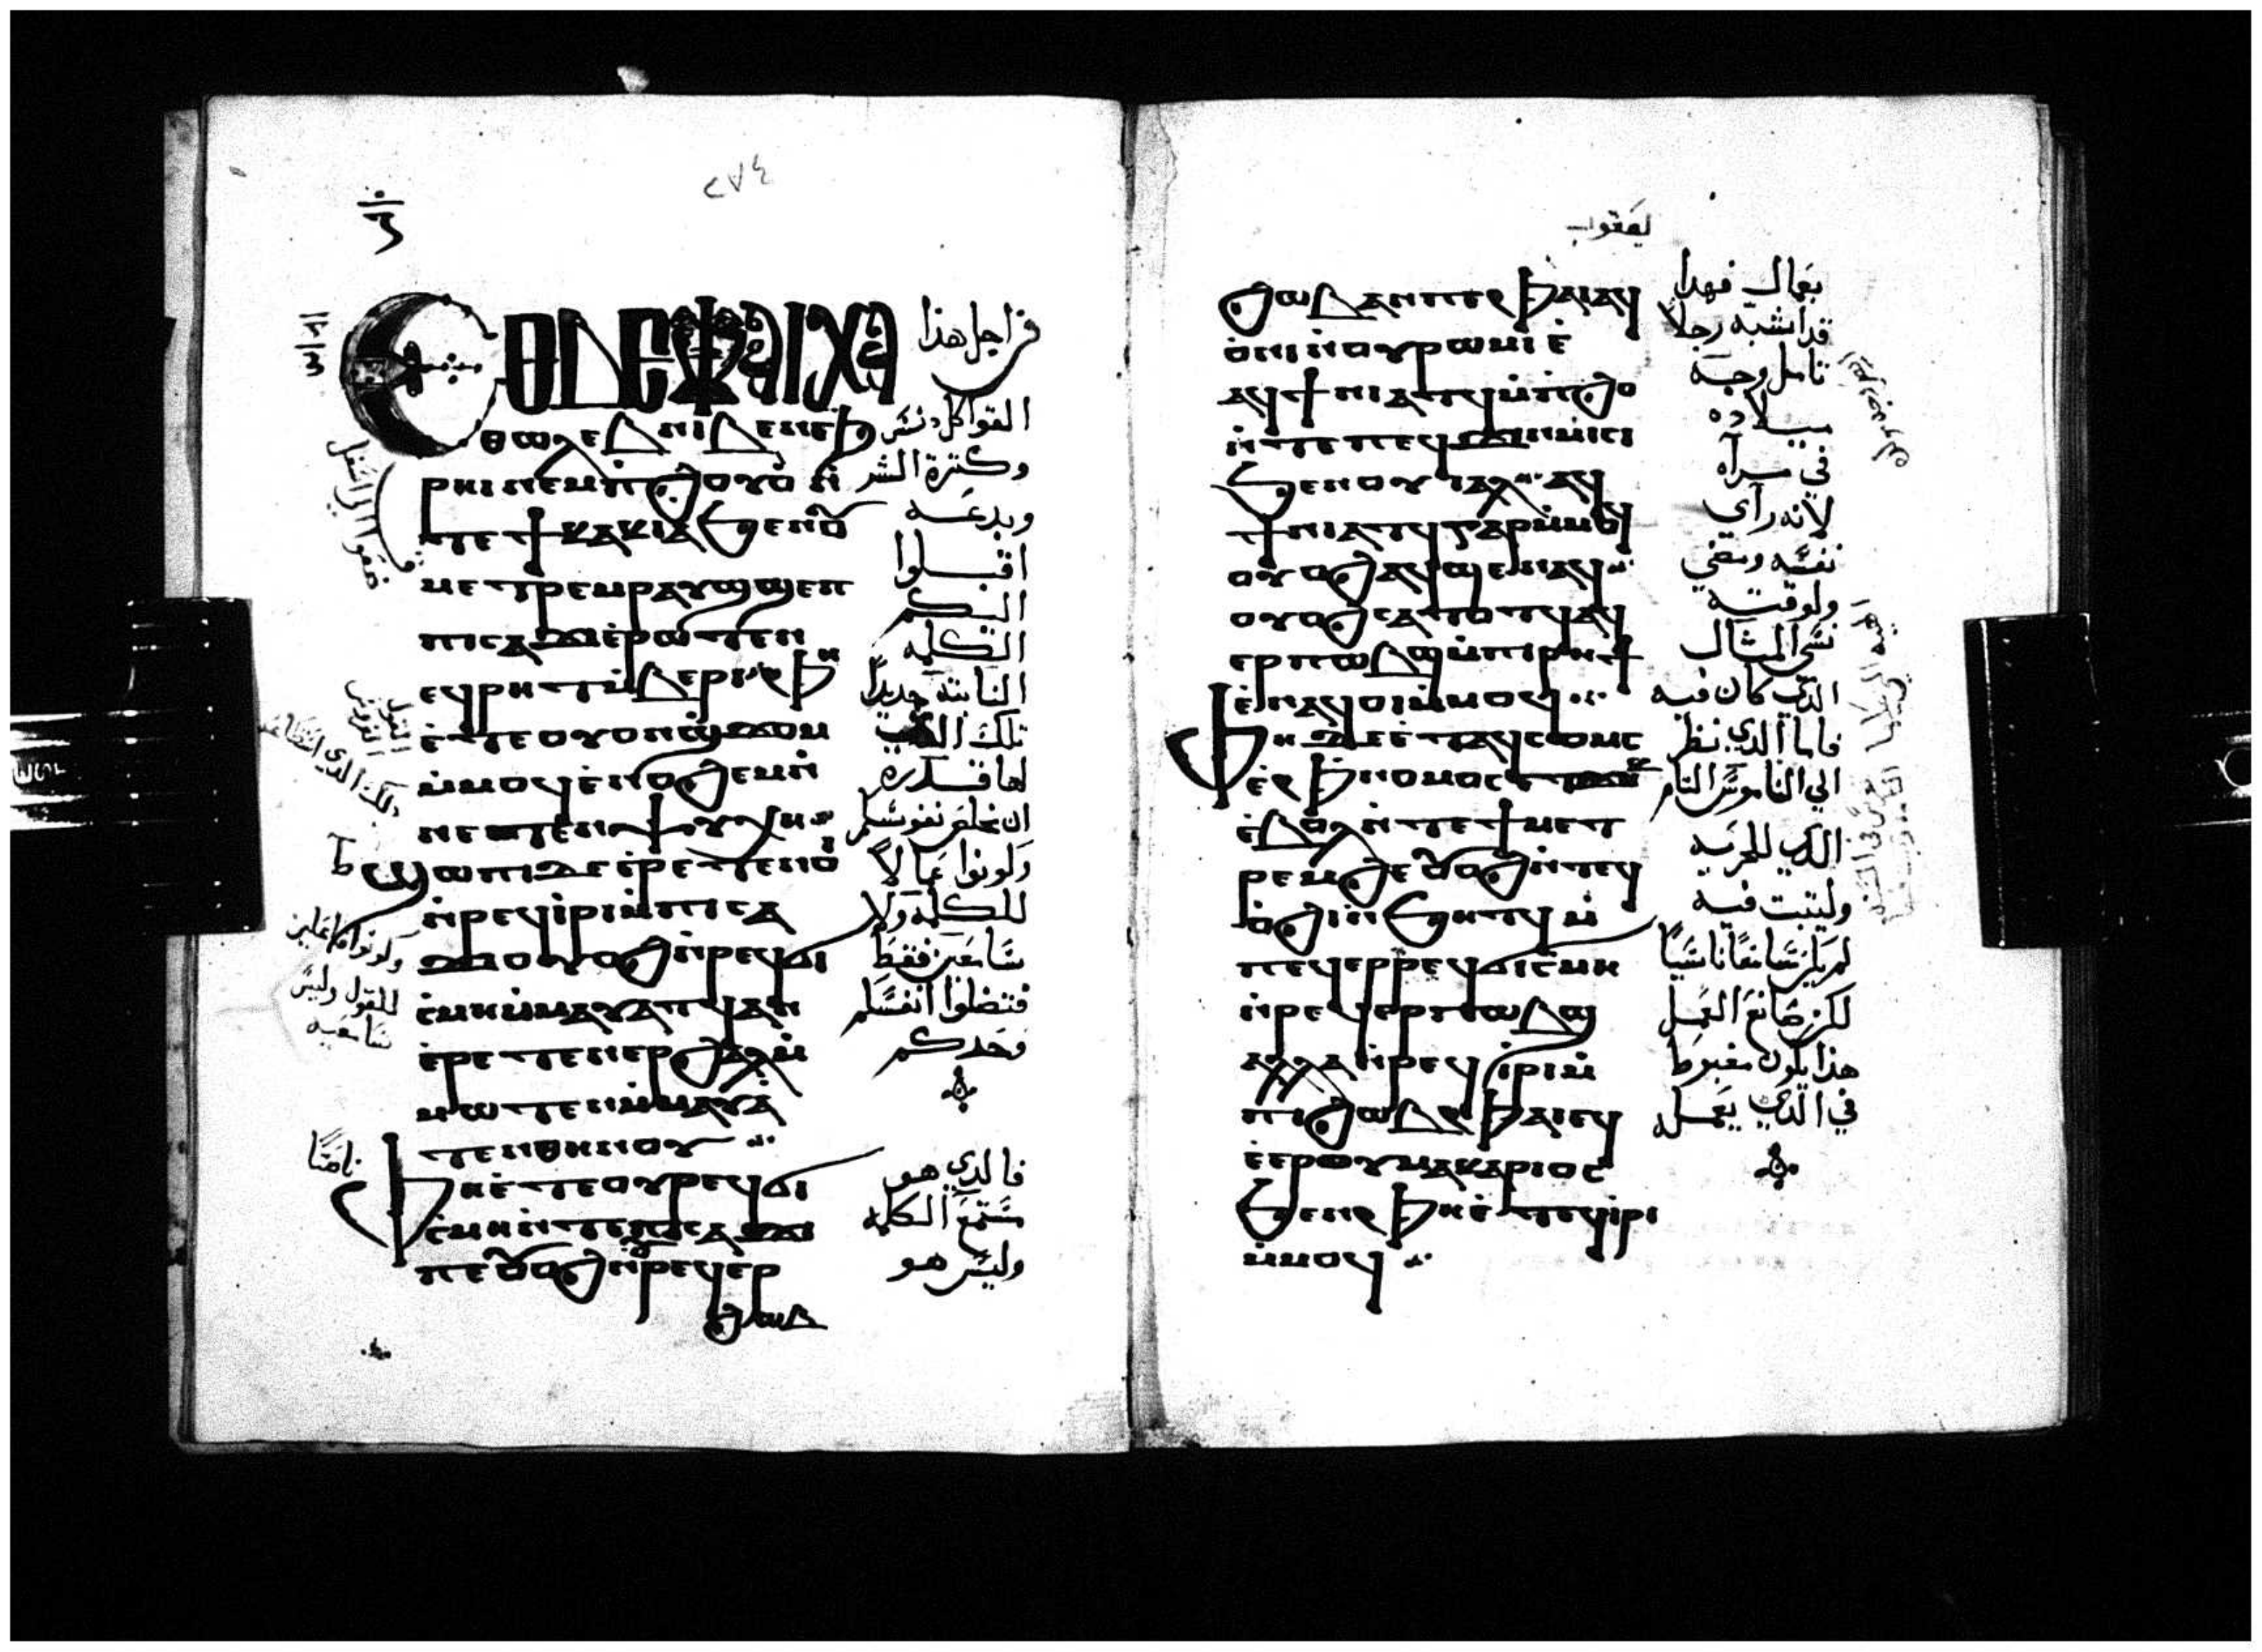 ٢٧٤
ⲉⲑⲃⲉⲫⲁⲓⲭⲁ
ⲑⲱⲗⲉⲃ ⲛⲓⲃⲉⲛ ⲉϧ
ⲣⲏⲓ ⲛⲉⲙ ⲡϩⲟⲩⲟ ⲛ̀
ⲧⲉ ϯⲕⲁⲕⲓⲁ ϧⲉⲛ ⲟⲩ
ⲙⲉⲧⲣⲉⲙⲣⲁⲩϣ ϣⲉⲡ
ⲡⲓⲥⲁϫⲓ ⲉ̀ⲣⲱⲧⲉⲛ
ⲉϥⲣⲏⲧ ⲙ̀ⲃⲉⲣⲓ ⲫⲏ
ⲉ̀ⲧⲉ ⲟⲩⲟⲛ ϣϫⲟⲙ
ⲙ̀ⲙⲟϥ ⲉ̀ⲛⲟϩⲉⲙ ⲛ̀
ⲛⲉⲧⲉⲛⲯⲩⲭⲏ
ϣⲱⲡⲓ ⲇⲉ ⲉ̀ⲣⲉⲧⲉⲛⲟⲓ
ⲛ̀ⲣⲉϥⲓⲣⲓ ⲙ̀ⲡⲓⲥⲁ
ϫⲓ ⲟⲩⲟϩ ⲛ̀ⲣⲉϥϭⲓ
ⲥ̀ⲙⲏ ⲙ̀ⲙⲁⲩⲁⲧϥ ⲁⲛ
ⲉ̀ⲣⲉⲧⲉⲛⲉⲣϩⲁⲗ ⲙ̀
ⲙⲱⲧⲉⲛ ⲙ̀ⲙⲁⲩⲁ
ⲧⲉⲛ ⲑⲏⲛⲟⲩ
ⲫⲏ ⲉ̀ⲧⲉ ⲟⲩⲣⲉϥϭⲓ
ⲥ̀ⲙⲏ ⲛ̀ⲧⲉ ⲡⲓⲥⲁϫⲓ
ⲡⲉ ⲟⲩⲟϩ ⲛ̀ⲣⲉϥⲉⲣ
ϩⲱⲃ
فمن اجل هذا
وكثرة الشر
وبدعه
اقبلوا
اليكم
الكلمه
النابته جديدًا
تلك التي
لها قدره
ان تخلص نفوسكم
وكونوا عمالاً
للكلمه ولا
سامعين فقط
فتضلوا انفسكم
وحدكم
فالذي هو
سمع الكلمه
وليس هو
وكونوا فاعلين
للقول وليس
سامعيه
ناصتًا
يعقوب
ϩⲱⲃ ⲁⲛ ⲡⲉ ⲫⲁⲓ ⲁϥ
ⲟ̀ⲛⲓ ⲛ̀ⲟⲩⲣⲱⲙⲓ ⲉ̀
ⲁϥϯⲛⲓⲁⲧϥ ⲙ̀ⲡϩⲟ
ⲛ̀ⲧⲉ ⲡⲉϥϫⲓⲛⲙⲓⲥⲓ
ϧⲉⲛ ⲟⲩⲓⲁⲗ ⲁϥ
ϯⲛⲓⲁⲧϥ ⲅⲁⲣ ⲙ̀ⲙⲟϥ
ⲟⲩⲟϩ ⲁϥϣⲉⲛⲁϥ
ⲟⲩⲟϩ ⲥⲁⲧⲟⲧϥ ⲁϥ
ⲉⲣⲡⲱⲃϣ ⲙ̀ⲡⲓⲣⲏϯ
ⲉ̀ⲛⲁϥⲟⲓ ⲙ̀ⲙⲟϥ
ⲫⲏ ⲇⲉ ⲉ̀ⲧⲁϥⲥⲟⲙⲥ
ⲉ̀ⲫⲛⲟⲙⲟⲥ ⲉⲧϫⲏⲕ
ⲉ̀ⲃⲟⲗ ⲛ̀ⲧⲉ ϯⲙⲉⲧ
ⲣⲉⲙϩⲉ ⲟⲩⲟϩ ⲛ̀ⲧⲉϥ
ⲟ̀ϩⲓ ⲛ̀ϧⲏⲧϥ ⲙ̀
ⲡⲉϥⲉⲣⲣⲉϥϭⲓⲥⲙⲏ
ⲛ̀ⲣⲉϥⲉⲣⲡⲱⲃϣ
ⲁⲗⲗⲁ ⲛ̀ⲣⲉϥⲓ̀ⲣⲓ ⲙ̀
ⲡⲓϩⲱⲃ ⲫⲁⲓ ⲉϥ
ⲉ̀ⲉⲣ ⲟⲩⲙⲁⲕⲁⲣⲓⲟⲥ
ϧⲉⲛ ⲫⲏ ⲉ̀ⲧⲉϥⲓ̀ⲣⲓ
ⲙ̀ⲙⲟϥ
بعمال فهذا
قد اشبه رجلاً
تامل وجه
ميلاده
في مرآه
لانه رآي
نفسه ومضي
ولوقته
نسي المثال
الذي كان فيه
فاما الذي نظر
الي الناموس التام
الذي للحريه
وليثبت فيه
لم يكن سامعًا ناسيًا
لكن صانع العمل
هذا يكون مغبوط
في الذي يعمله